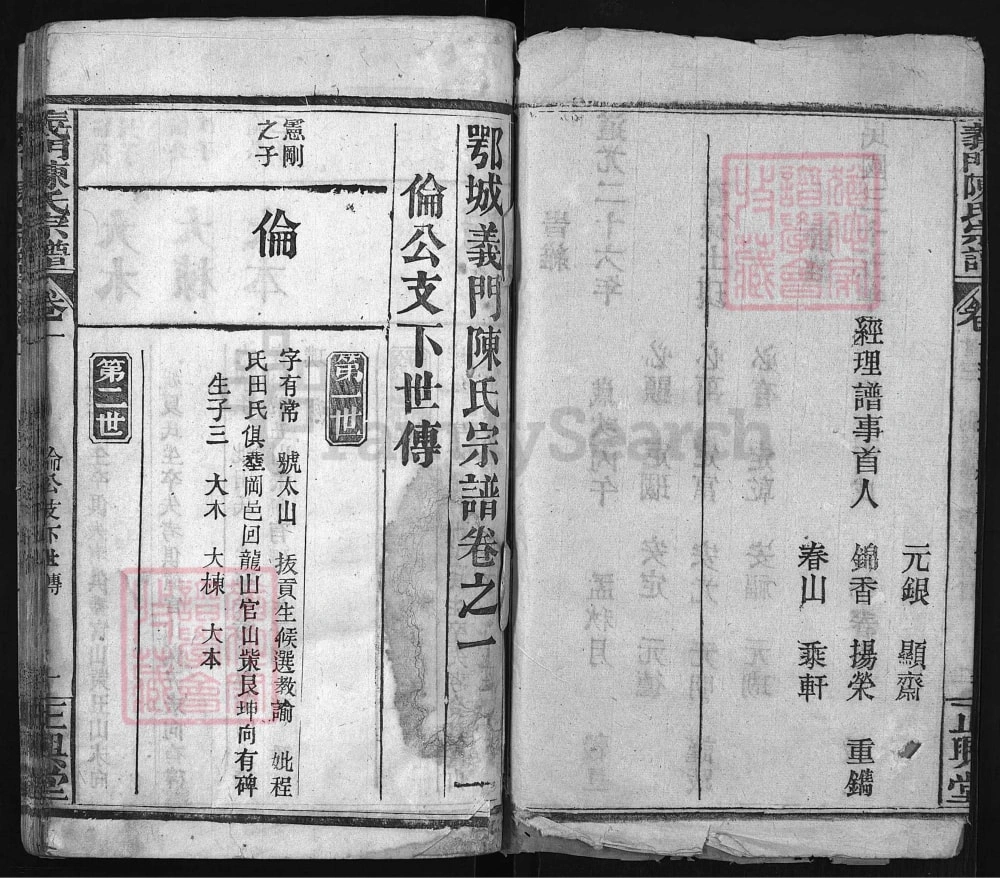 義門陳氏宗譜
經理譜事首人
元銀　顯齋
錦香　揚榮　重鐫
春山　乘軒
正興堂
鄂城義門陳氏宗譜卷之一　一
倫公支下世傳
憲剛
之子
倫
第一世
字有常　號太山　拔貢生候選教諭　妣程
氏田氏俱塟岡邑回龍山官山岽艮坤向有碑
生子三　大木　大棟　大本
第二世
義門陳氏宗譜　卷一　倫公支下世傳　一　正興堂
FamilySearch